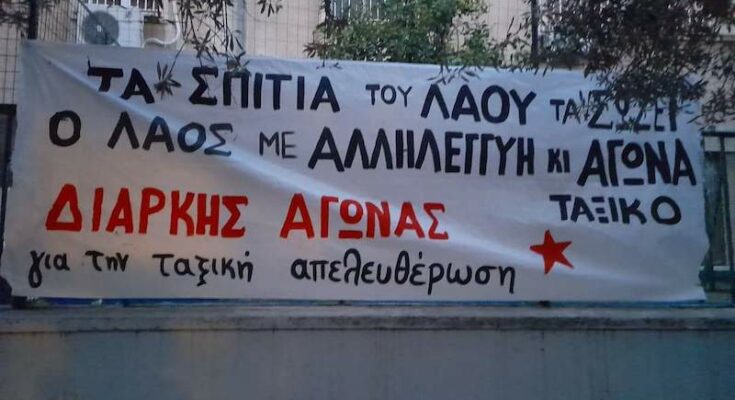 ΤΑ ΣΠΙΤΙΑ ΤΟΥ ΛΑΟΥ ΤΑ ΣΩΣΕΙ
Ο ΛΑΟΣ ΜΕ ΑΛΛΗΛΕΓΓΥΗ ΚΙ ΑΓΩΝΑ
ΤΑΞΙΚΟ
ΔΙΑΡΚΗΣ ΑΓΩΝΑΣ
για την ταξική απελευθέρωση